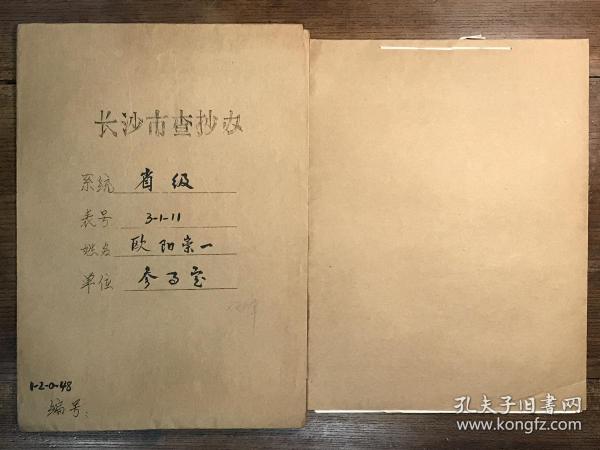 长沙市查抄办
系统 省级
表号 3-1-11
姓名 欧阳崇一
单位 参事室
1-2-0-48
编号:
孔夫子旧书网
www.kongfz.com